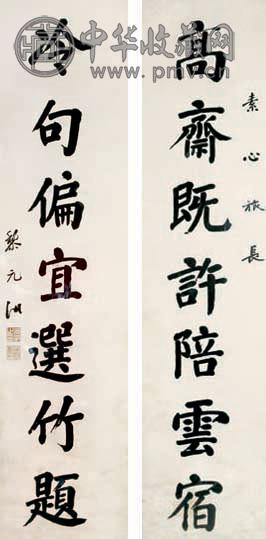 中华收藏网
www.pmv.cn
素心旅長
高齋既許陪雲宿
句偏宜選竹題
黎元洪